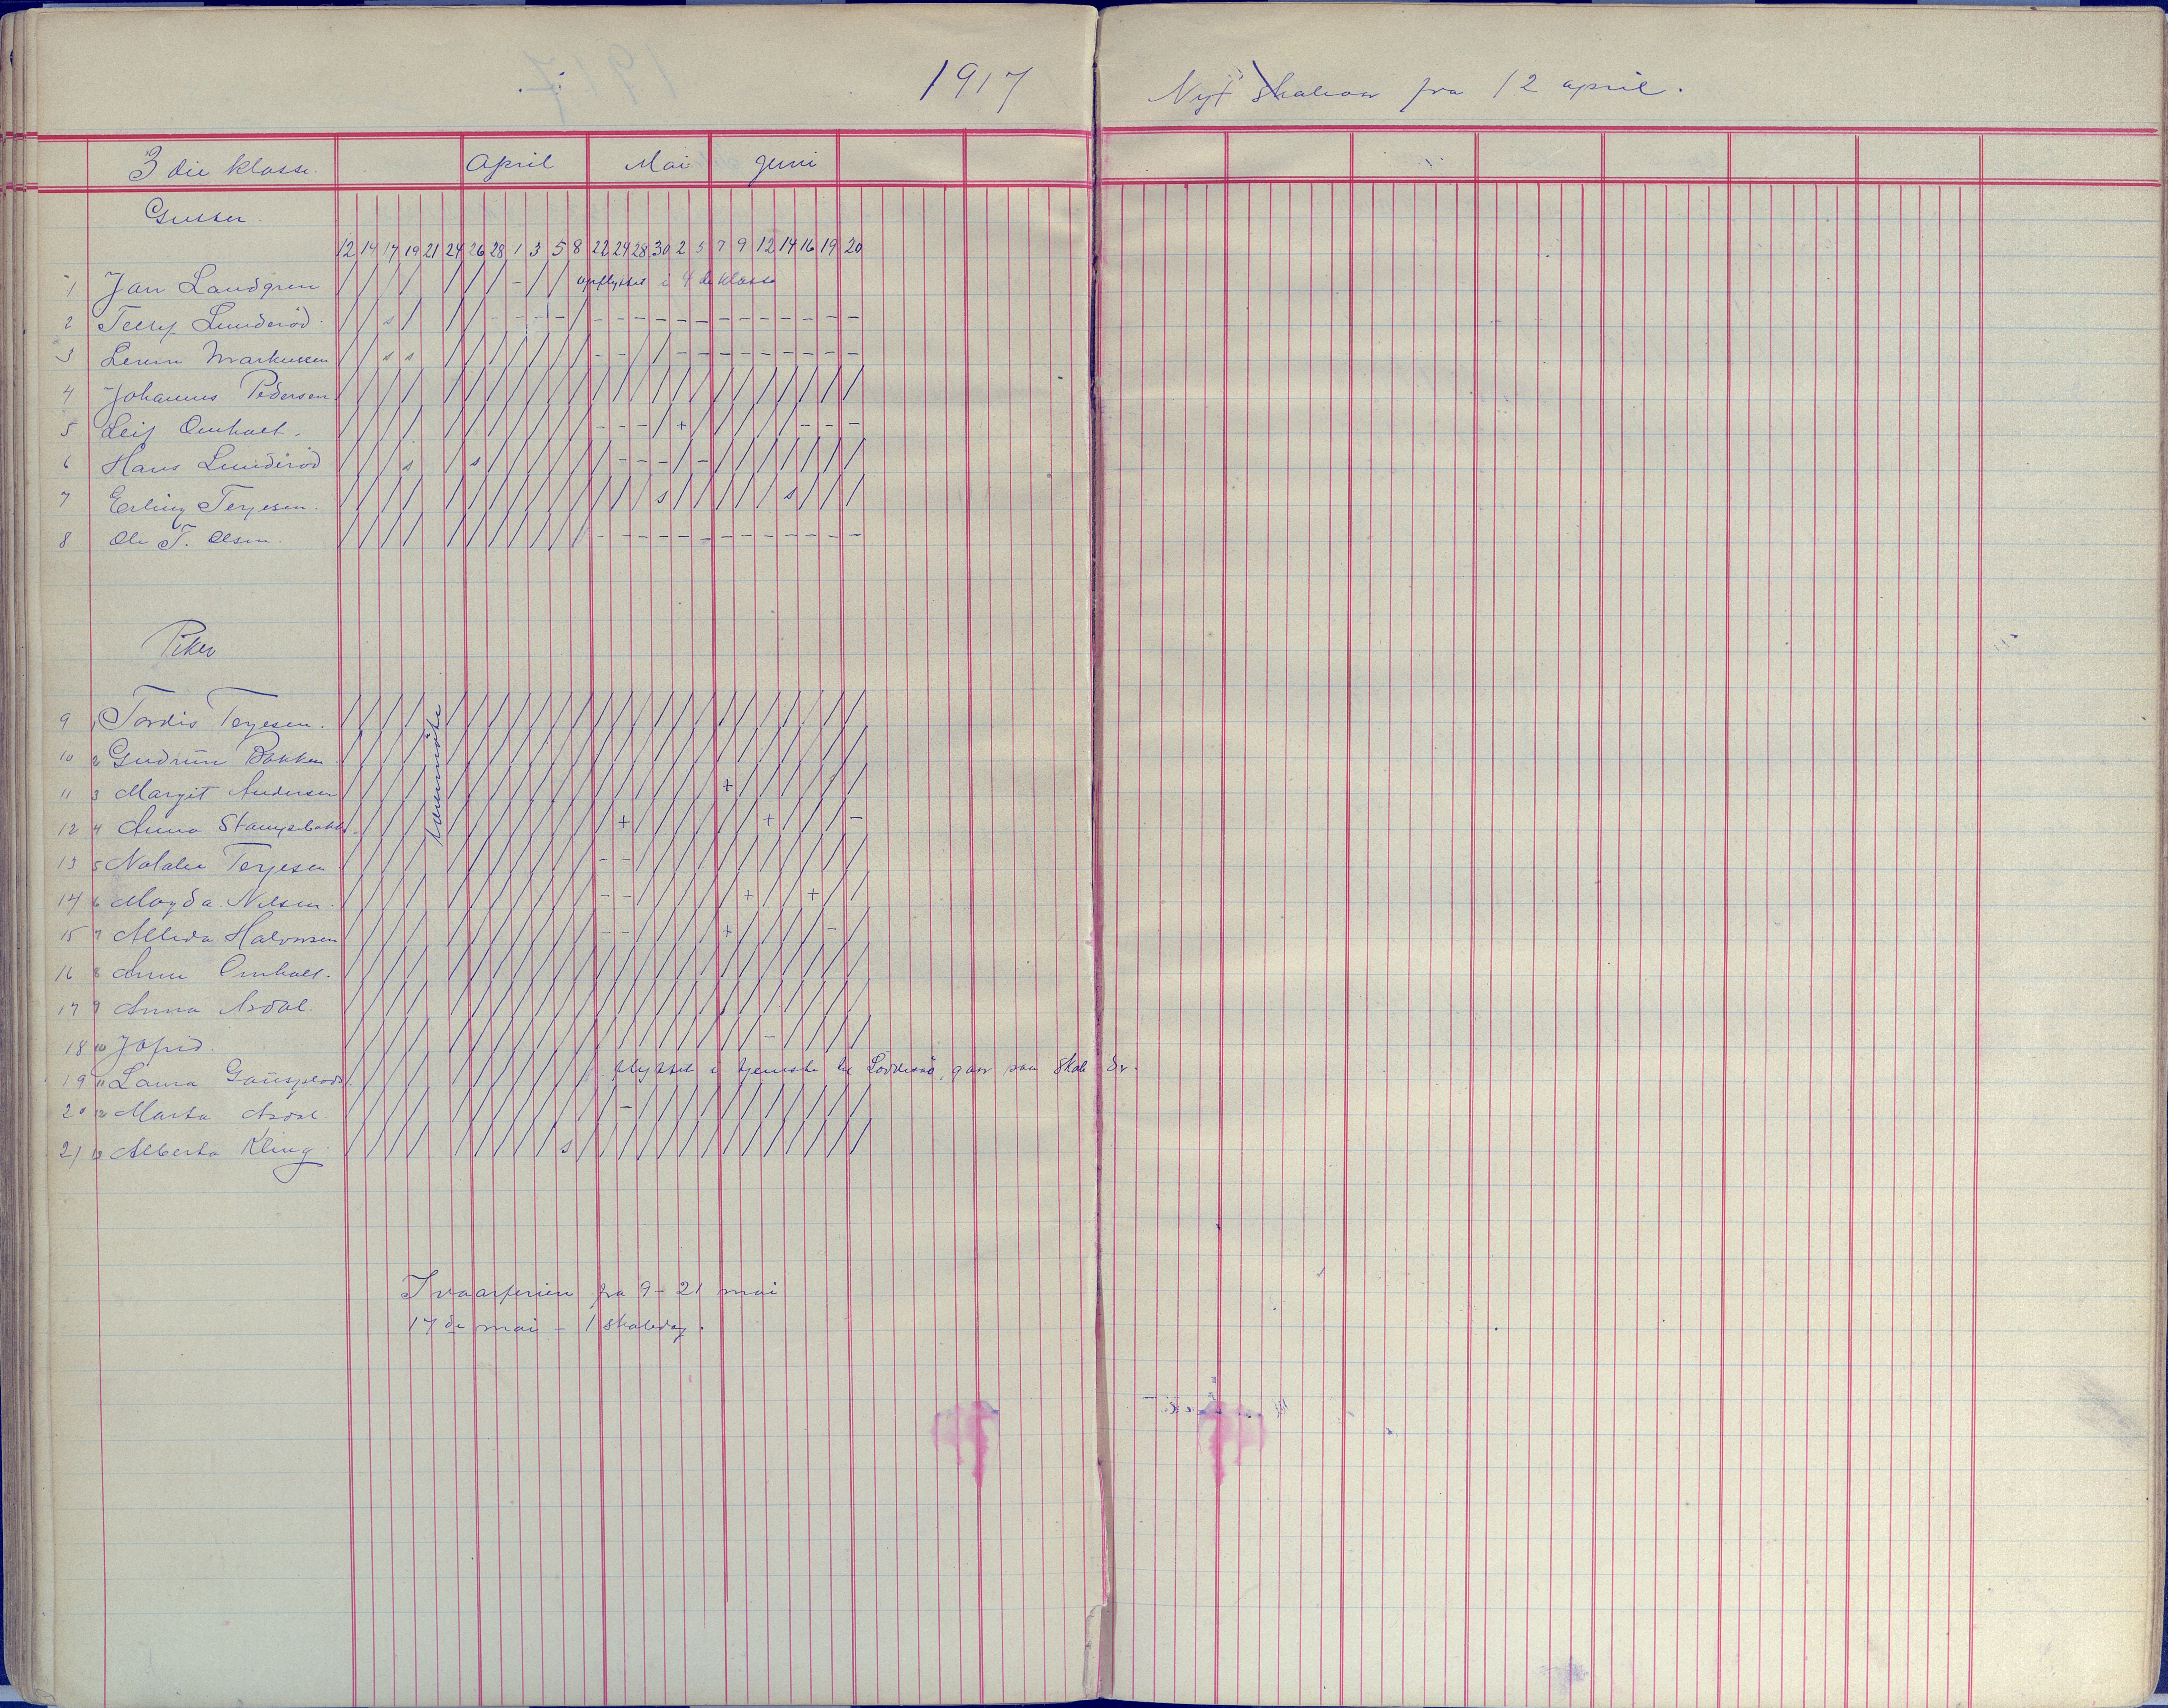 1917
Nyt Skoleaar fra 12 april.
3 die klasse. April Mai Juni
Gutter
12 14 17 19 21 24 26 28 1 3 5 8 22 24 28 30 2 5 7 9 12 14 16 19 20
1 Jan Landgren / / / / / / / - / / opflyttet i 4 de klasse
2 Lunderöd / / s / / / - - - - / - - - - - - - - - - - - -
3 Markussen / / s s / / / / / / / - - / / - - - - - - - - -
4 Johannes Pedersen / / / / / / / / / / / / / / / / / / / / / / / /
5 Leif Omholt. / / / / / / / / / / / - - - / + / / / / / - - -
6 Hans Lunderöd / / / s / s / / / / / / - - - / - / / / / / / /
7 Erling Terjesen. / / / / / / / / / / / / / / s / / / / / s / / /
8 Ole T. Olsen. / / / / / / / / / / / - - - - - - - - - - - - -
Piker
lærermöte
9 1 Tordis Terjesen. / / / / / / / / / / / / / / / / / / / / / / / /
10 2 Gudrun Bakken. / / / / / / / / / / / / / / / / / / / / / / / /
11 3 Margit Andersen / / / / / / / / / / / / / / / / / + / / / / / /
12 4 Anna / / / / / / / / / / / / + / / / / / / + / / / -
13 5 Natalie Terjesen / / / / / / / / / / / - - / / / / / / / / / / /
14 6 Magda Nilsen. / / / / / / / / / / / - - / / / / / + / / + / /
15 7 Halvorsen / / / / / / / / / / / - - / / / / + / / / / - /
16 8 Anne Omholt. / / / / / / / / / / / / / / / / / / / / / / / /
17 9 Anna Asdal. / / / / / / / / / / / / / / / / / / / / / / / /
18 10 Jofrid. / / / / / / / / / / / / / / / / / / / - / / / /
19 11 Laura / / / / / / / / / / / flyttet i tjeneste til gaar paa skole der.
20 12 Marta Asdal. / / / / / / / / / / / / - / / / / / / / / / / /
21 13 Alberta Kling. / / / / / / / / / s / / / / / / / / / / / / / /
I vaarferien fra 9 - 21 mai
17 de mai - 1 skoledag.